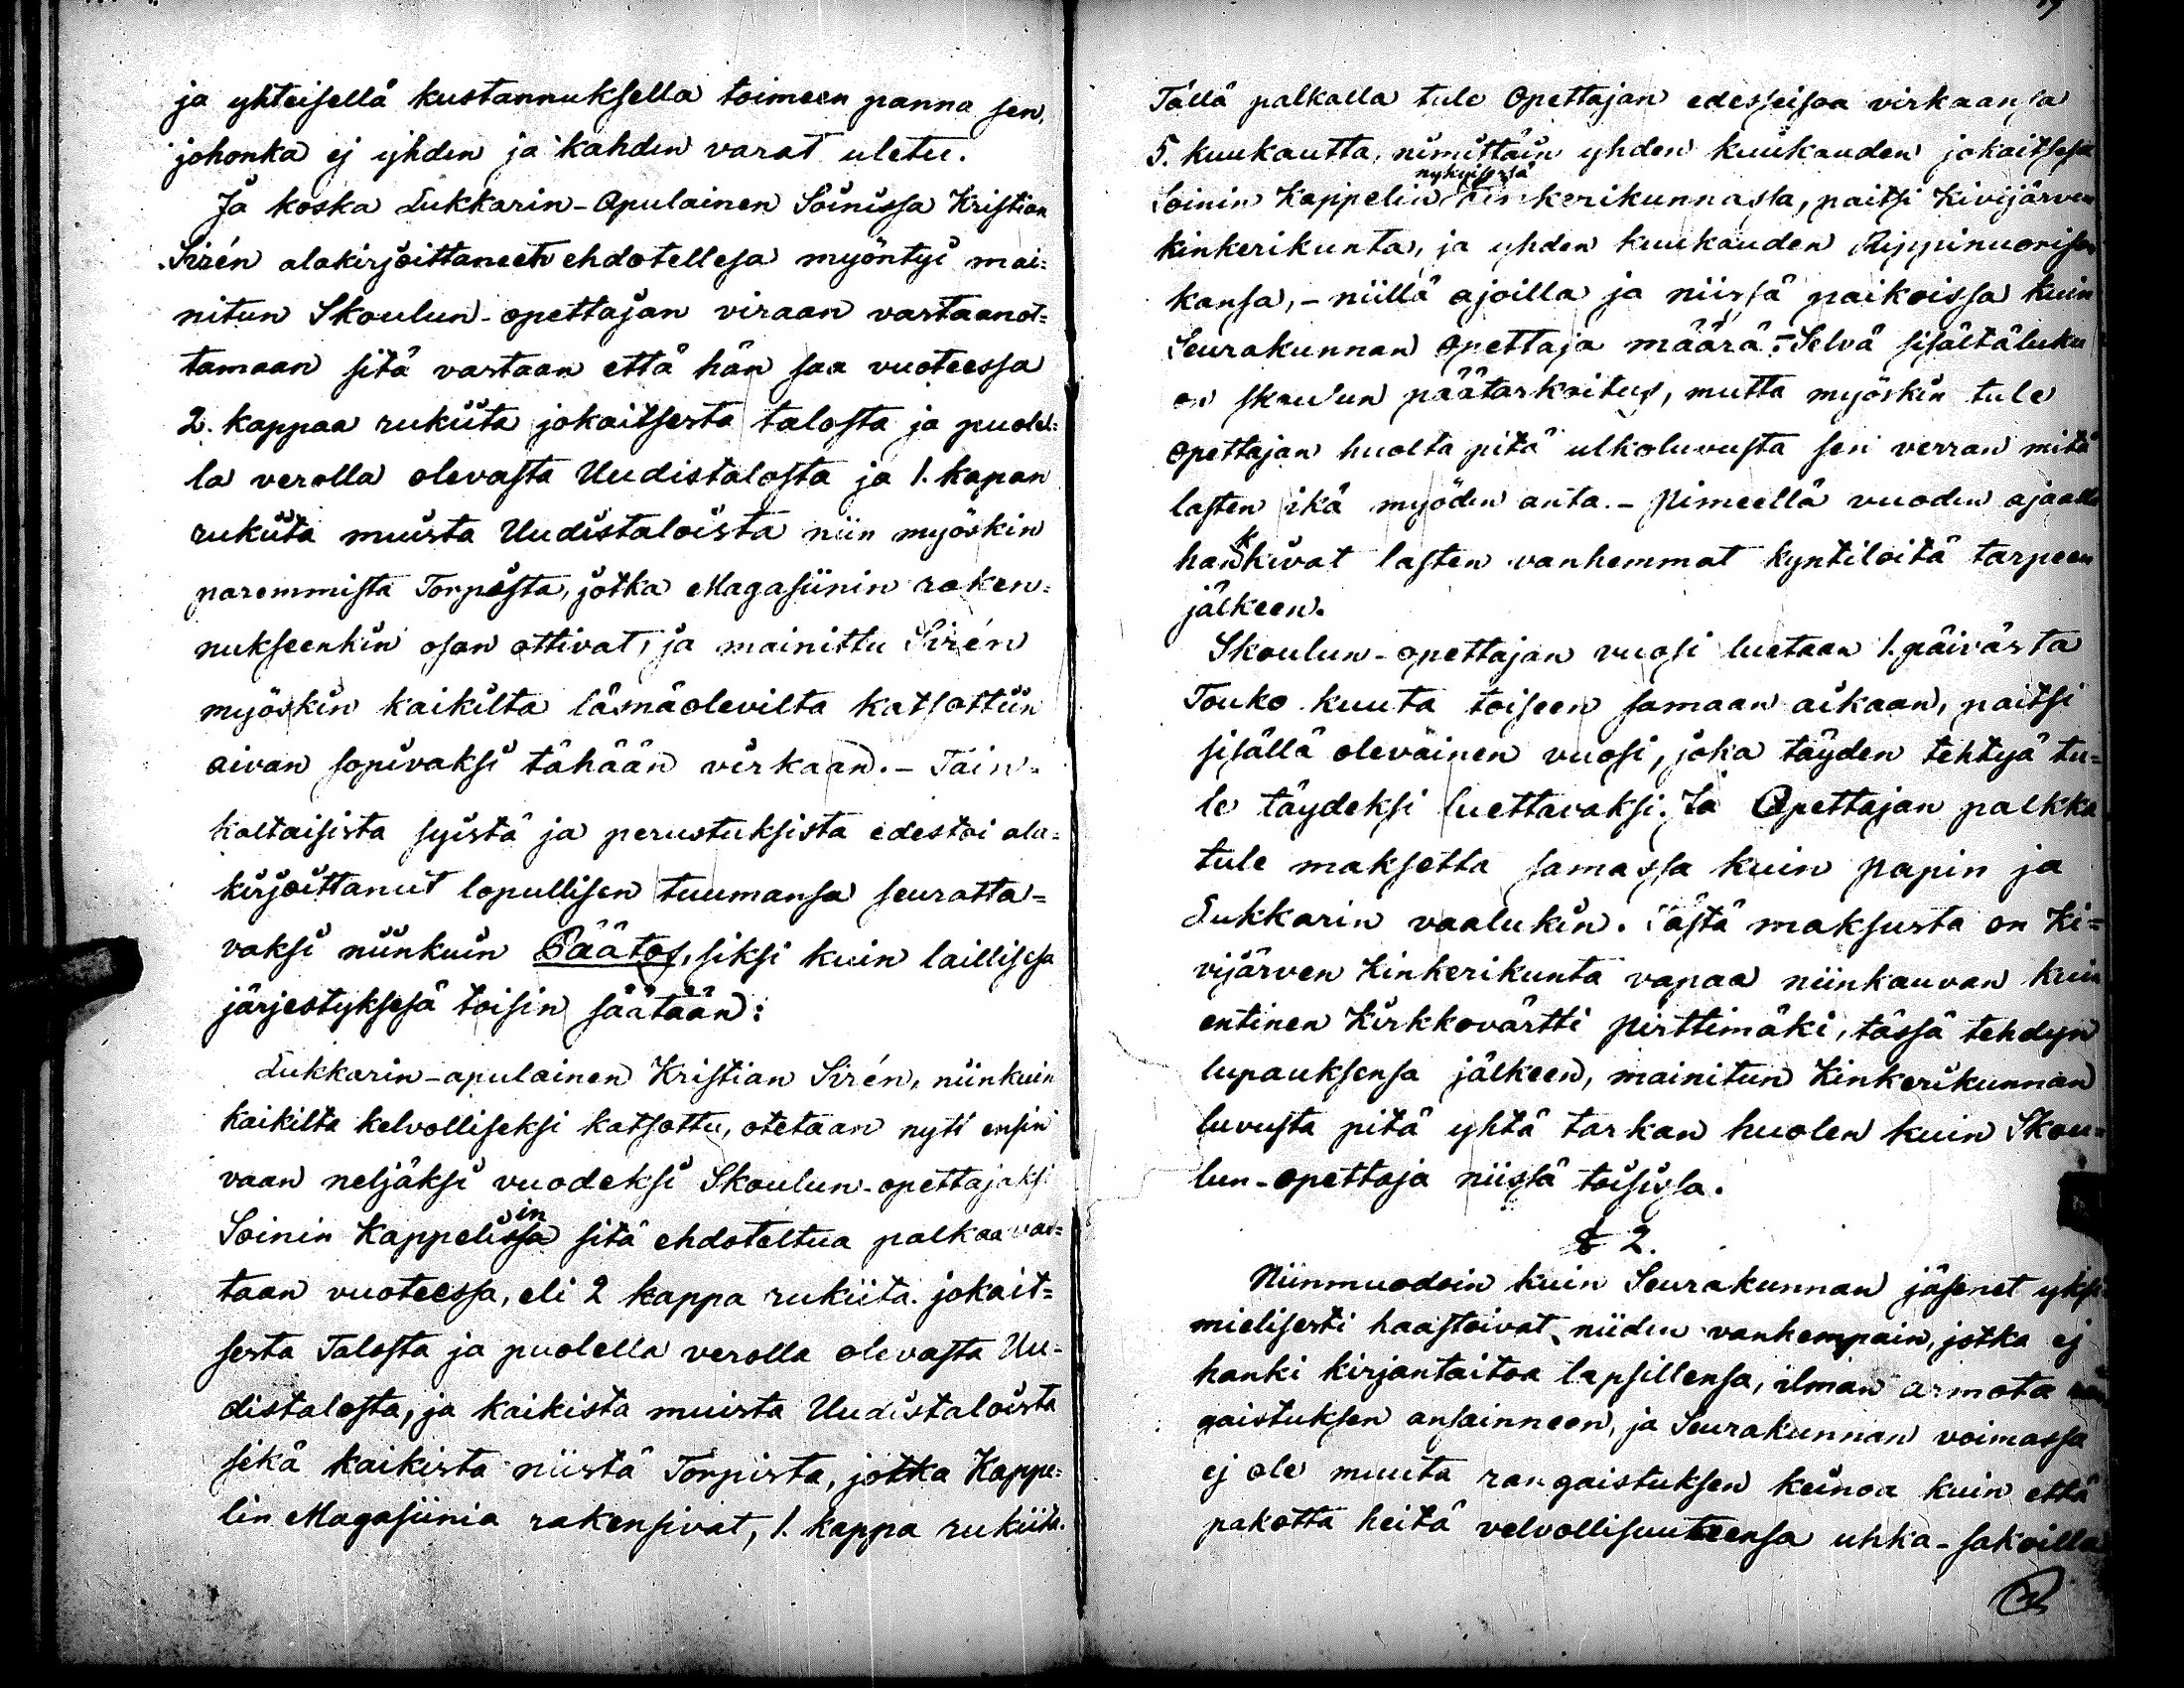 ja yhteisellä kustannuksella toimeen panna sen,
johonka ej yhden ja kahden varat uletu.
Ja koska Lukkarin-Apulainen Soinissa Kristian
Sirén alakirjoittaneen ehdotellesa myöntyi mai=
nitun Skoulun-opettajan viraan vastaanot=
tamaan sitä vastaan että hän saa vuoteessa
2. kappaa rukiita jokaitsesta talosta ja puolel=
la verolla olevasta Uudistalosta ja 1. kapan
rukiita muista Uudistaloista niin myöskin
paremmista Torpista, jotka Magasiinin raken=
nukseenkin osan ottivat, ja mainittu Sirén
myöskin kaikilta läsnäolevilta katsottiin
aivan sopivaksi tähään virkaan. - Täin=
kaltaisista syistä ja perustuksista edestoi ala=
kirjoittanut lopullisen tuumansa seuratta=
vaksi niinkuin Päätös, siksi kuin laillisesa
järjestyksesä toisin säätään:
Lukkarin-apulainen Kristian Sirén, niinkuin
kaikilta kelvolliseksi katsottu, otetaan nyt ensin
vaan neljäksi vuodeksi Skoulun-opettajaksi
Soinin Kappelissa in sitä ehdoteltua palkaa vas=
taan vuoteessa, eli 2 kappa rukiita jokait=
sesta Talosta ja puolella verolla olevasta Uu=
distalosta, ja kaikista muista Uudistaloista
sekä kaikista niistä Torpista, jotka Kappe=
lin Magasiinia rakensivat, 1. kappa rukiita.
Tällä palkalla tule Opettajan edesseisoa virkaansa
5. kuukautta, nimittäin yhden kuukauden jokaitsesa
nykyisesä
Soinin Kappelin Kinkerikunnassa, paitsi Kivijärven
kinkerikunta, ja yhden kuukauden Rippinuorison
kansa, - niillä ajoilla ja niissä paikoissa kuin
Seurakunnan Opettaja määrä. - Selvä sisältäluku
on skoulun päätarkoitus, mutta myöskin tule
Opettajan huolta pitä ulkoluvusta sen verran mitä
lasten ikä myöden anta. - Pimeellä vuoden ajaalla
hankkivat lasten vanhemmat kyntiloitä tarpeen
jälkeen.
Skoulun-opettajan vuosi luetaan 1. päivästa
Touko kuuta toiseen samaan aikaan, paitsi
sisällä oleväinen vuosi, joka täyden tehtyä tu=
le täydeksi luettavaksi. Ja Opettajan palkka
tule maksetta samassa kuin Papin ja
Lukkarin vaalukin. Tästä maksusta on Ki=
vijärven Kinkerikunta vapaa niinkauvan kuin
entinen Kirkkovärtti Pirttimäki, tässä tehdyn
lupauksensa jälkeen, mainitun Kinkerikunnan
luvusta pitä yhtä tarkan huolen kuin Skou=
lun-opettaja niissä toisissa.
§ 2.
Niinmuodoin kuin Seurakunnan jäsenet yksi=
mielisesti haastoivat niiden vanhempain, jotka ej
hanki kirjantaitoa lapsillensa, ilman armota ran=
gaistuksen ansainneen, ja Seurakunnan voimassa
ej ole muuta rangaistuksen keinoa kuin että
pakotta heitä velvollisuuteensa uhka-sakoilla